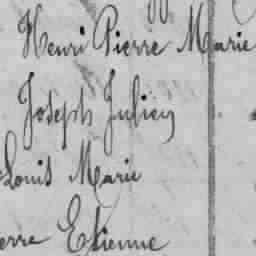 Henri Pierre Marie
Joseph Julien
Louis Marie
erre Etienne